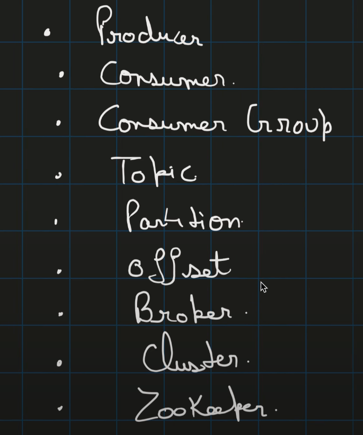 • Producer
• Consumer.
• Consumer Group
• Topic
• Partition
• Offset
• Broker.
• Cluster.
• ZooKeeper.